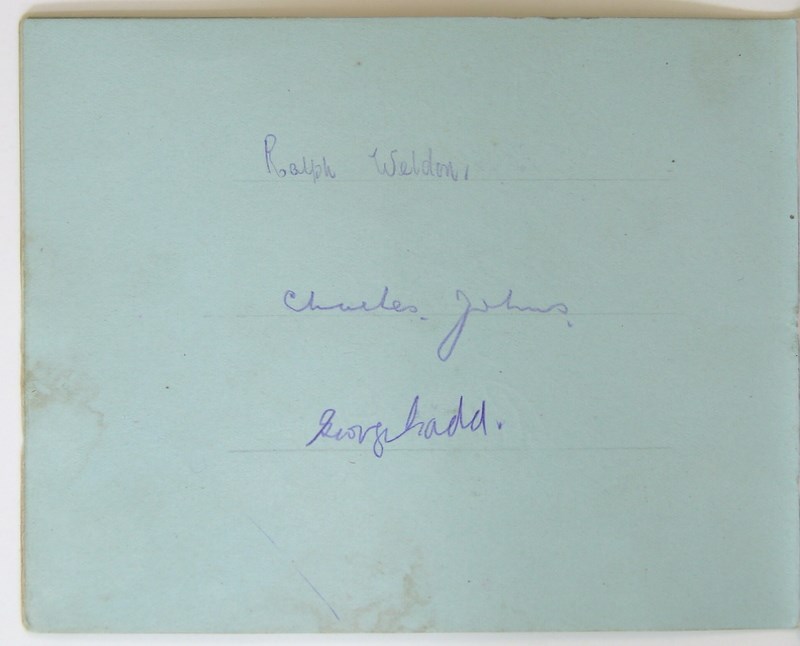 Ralph Weldon.
Charles. Johns.
George Gadd.